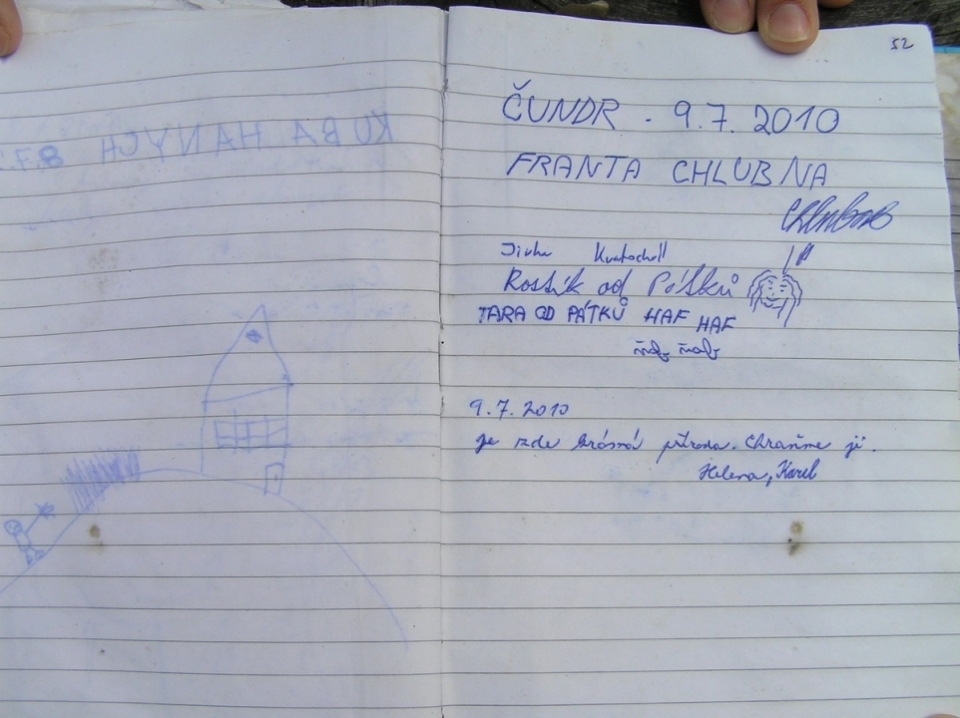 52
ČUNDR - 9.7.2010
FRANTA CHLUBNA
Rostík od Pátků
TARA OD PÁTKŮ HAF HAF
ňaf ňaf
9.7.2010
je zde krásná příroda. Chraňme ji.
Helena, Karel
KUBA HANYCH